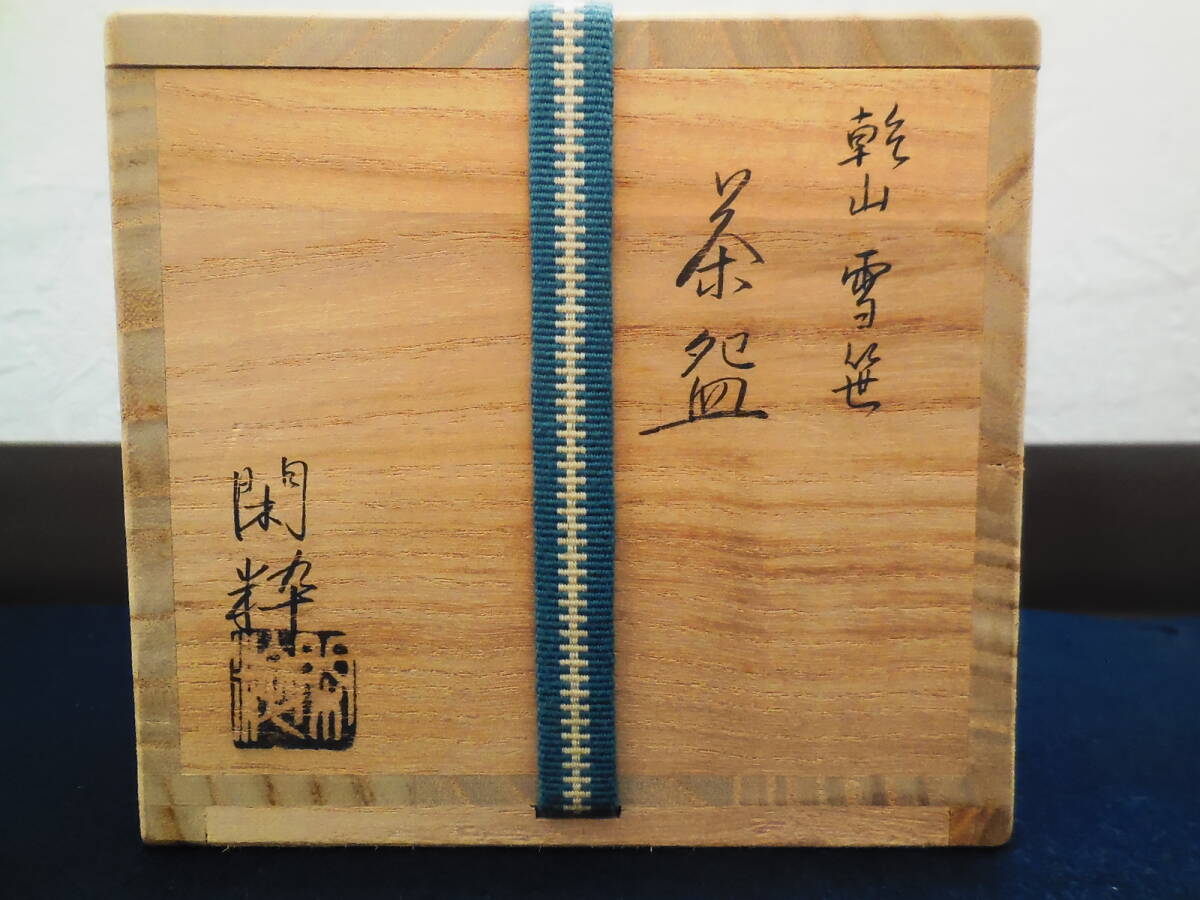 乾山 雪笹
茶盌
閑粋